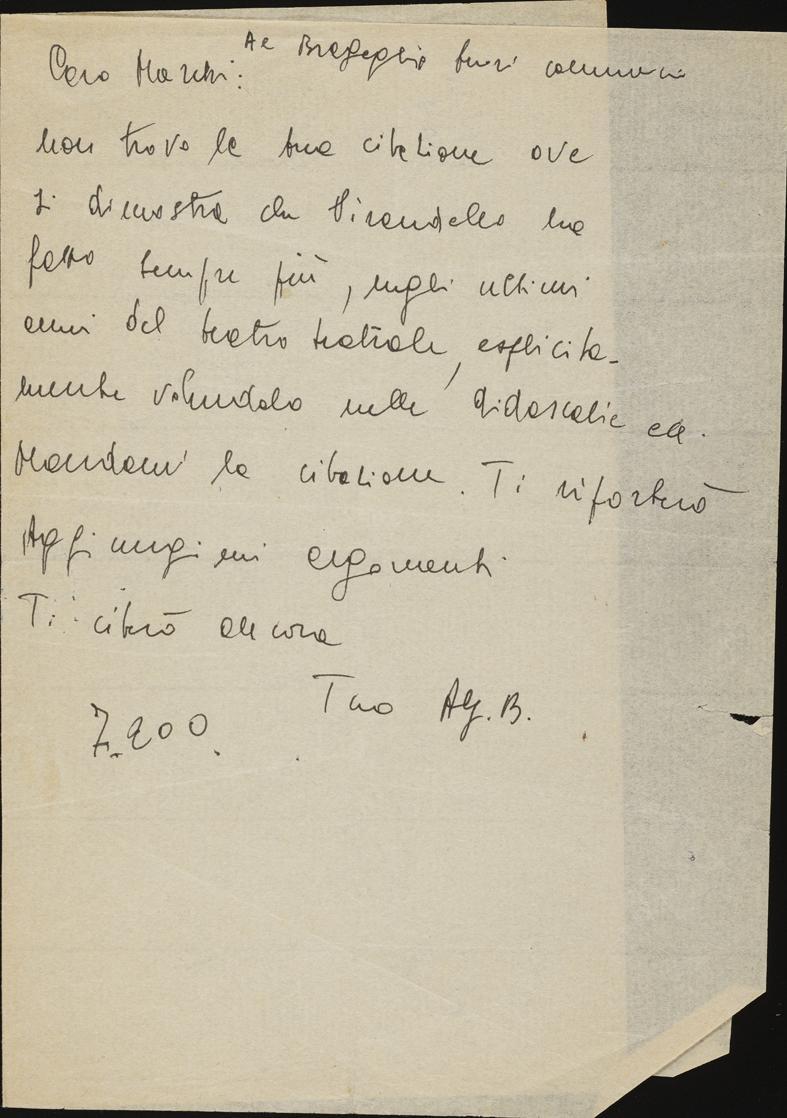 Caro Marchi: A. G. Bragaglia
non trovo la tua citazione ove
si dimostra che Pirandello ha
fatto sempre più, negli ultimi
anni del teatro teatrale, esplicita-
mente volendolo nelle didascalie ecc.
Mandami la citazione. Ti riporterò
Aggiungimi argomenti
Ti citerò ancora
Tuo AG. B.